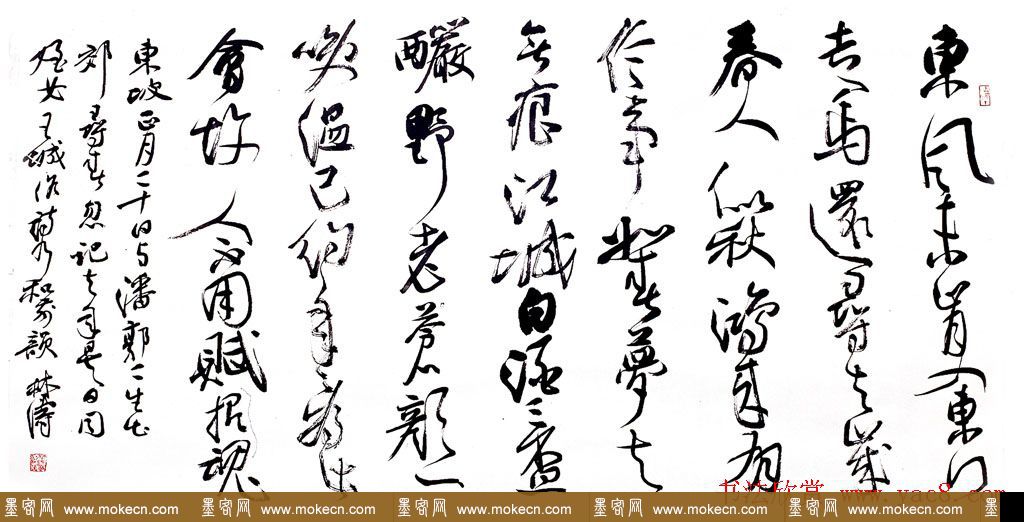 東風未肯入東門
走馬還尋去歲
春人似秋鴻來有
信事如春夢了
無痕江城白酒三盃
釅野老蒼顏一
笑溫已約年年為此
會故人不用賦招魂
東坡正月二十日與潘郭二生出
郊尋春忽記去年是日同
至女王城作詩乃和前韻 林濤
书法欣赏 www.yac8.com
墨客网 www.mokecn.com 墨客网 www.mokecn.com 墨客网 www.mokecn.com 墨客网 www.mokecn.com 墨客网 www.mokecn.com